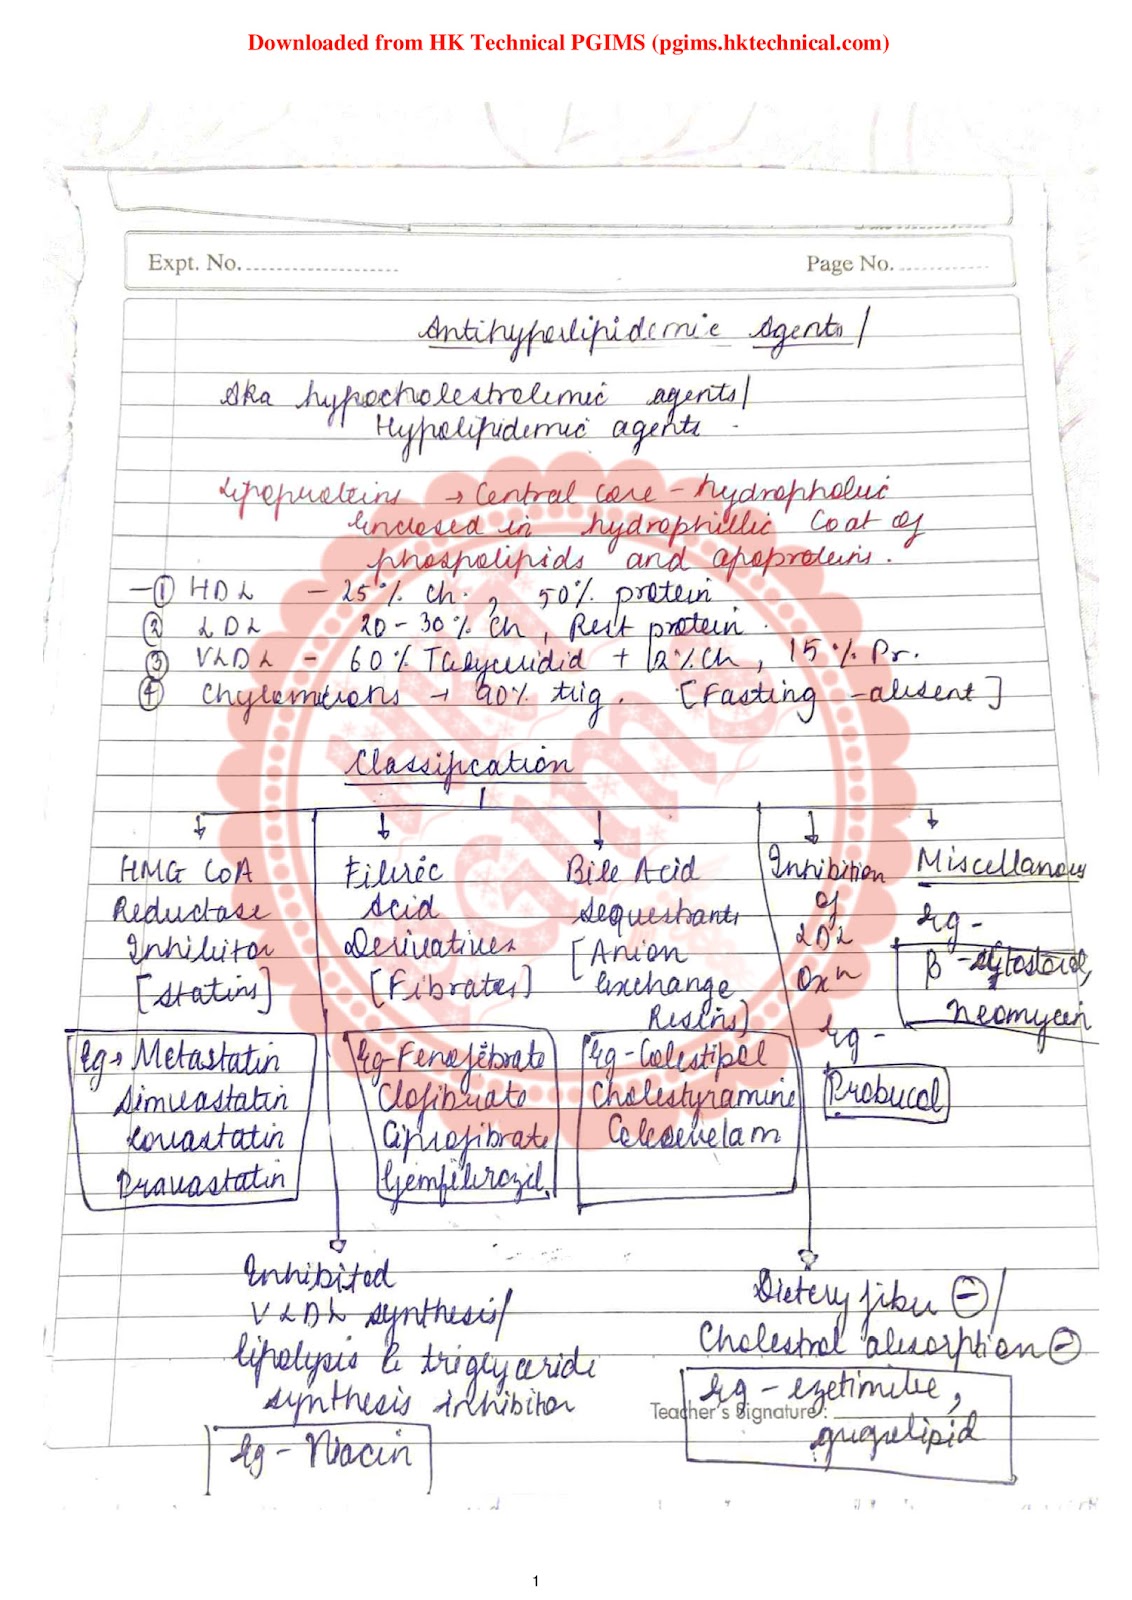 Downloaded from HK Technical PGIMS (pgims.hktechnical.com)
Expt. No.
Page No.
Antihyperlipidemic Agents/
Aka hypocholestrolemic agents/
Hypolipidemic agents.
Lipoproteins → Central core - hydrophobic
enclosed in hydrophillic Coat of
phospolipids and apoproteins.
① HDL - 25% ch. , 50% protein
② LDL 20-30% ch, Rest protein.
③ VLDL - 60% Triglyceridid + 12% Ch, 15% Pr.
④ Chylomicrons → 90% trig. [Fasting - absent]
Classification
HMG CoA
Reductase
Inhibitor
[Statins]
Eg → Metastatin
Simvastatin
Lovastatin
Pravastatin
Fibric
Acid
Derivatives
[Fibrates]
Eg - Fenofibrate
Clofibrate
Ciprofibrate
Gemfibrozil.
Bile Acid
Sequestrants
[Anion
exchange
Resins]
Eg - Colestipol
Cholestyramine
Colesevelam
Inhibition
of
LDL
Oxn
Eg -
Probucol
Miscellanous
Eg -
β-sytosterol,
Neomycin
Inhibited
VLDL synthesis/
lipolysis & triglyceride
synthesis inhibitor
Eg - Niacin
Dietery fiber ⊖/
Cholestrol absorption ⊖
Eg - ezetimibe,
Teacher's Signature :
gugulipid
HK
PGIMS
1